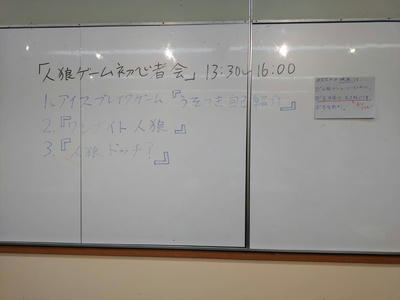 「人狼ゲーム初心者会」13:30~16:00
1.アイスブレイクゲーム『うそつき自己紹介』
2.『ワンナイト人狼』
3.『人狼ドッチ?』